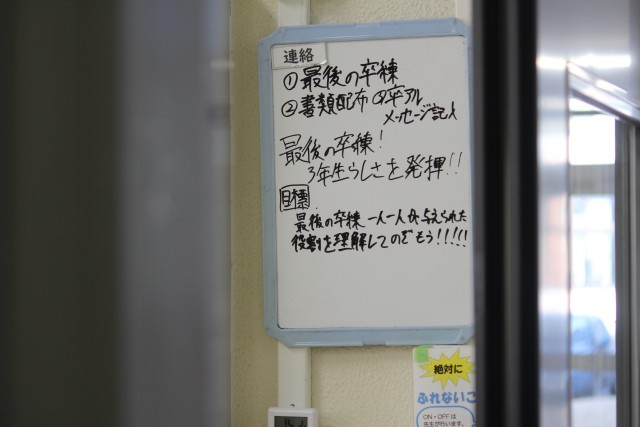 連絡
①最後の卒練
②書類配布 ③卒アル
メッセージ記入
最後の卒練！
3年生らしさを発揮!!
目標
最後の卒練 一人一人が与えられた
役割を理解してのぞもう!!!!!
絶対に
ふれないこ
ON・OFFは
先生が行います。